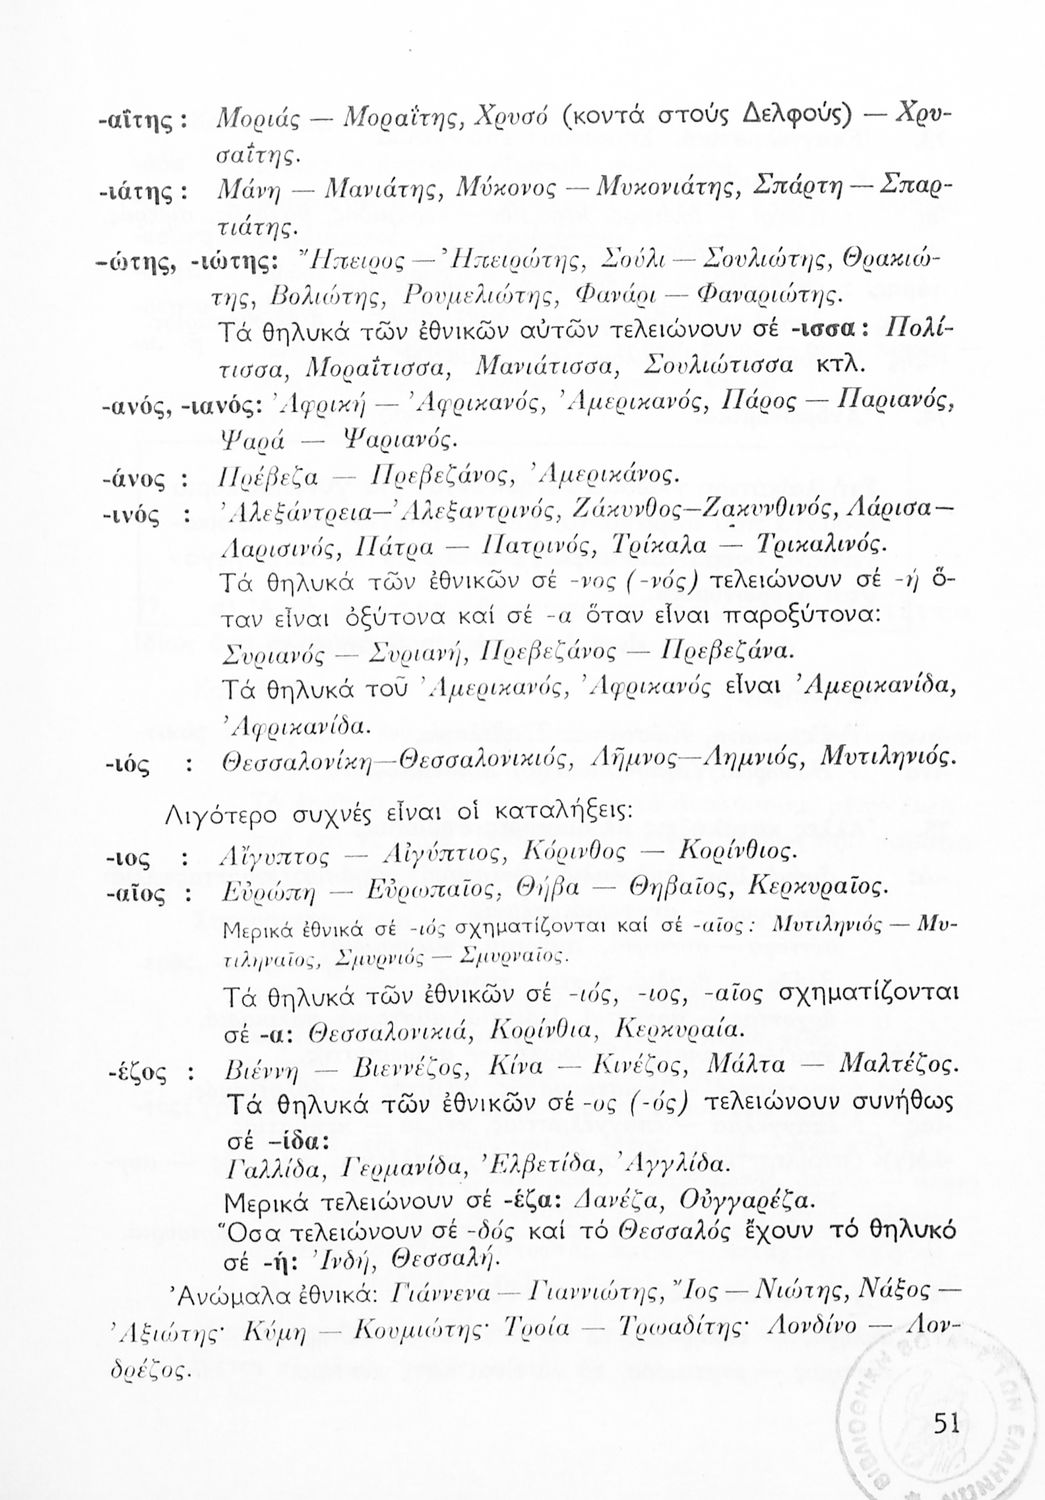 -αΐτης : Μοριάς — Μοραΐτης, Χρυσό (κοντά στούς Δελφούς) — Χρυ-
σαΐτης.
-ιάτης : Μάνη — Μανιάτης, Μύκονος — Μυκονιάτης, Σπάρτη — Σπαρ-
τιάτης.
-ώτης, -ιώτης: Ἤπειρος — Ἠπειρώτης, Σούλι — Σουλιώτης, Θρακιώ-
της, Βολιώτης, Ρουμελιώτης, Φανάρι — Φαναριώτης.
Τά θηλυκά τῶν ἐθνικῶν αὐτῶν τελειώνουν σέ -ισσα : Πολί-
τισσα, Μοραΐτισσα, Μανιάτισσα, Σουλιώτισσα κτλ.
-ανός, -ιανός: Ἀφρική — Ἀφρικανός, Ἀμερικανός, Πάρος — Παριανός,
Ψαρά — Ψαριανός.
-άνος : Πρέβεζα — Πρεβεζάνος, Ἀμερικάνος.
-ινός : Ἀλεξάντρεια—Ἀλεξαντρινός, Ζάκυνθος—Ζακυνθινός, Λάρισα—
Λαρισινός, Πάτρα — Πατρινός, Τρίκαλα — Τρικαλινός.
Τά θηλυκά τῶν ἐθνικῶν σέ -νος (-νός) τελειώνουν σέ -ή ὅ-
ταν εἶναι ὀξύτονα καί σέ -α ὅταν εἶναι παροξύτονα:
Συριανός — Συριανή, Πρεβεζάνος — Πρεβεζάνα.
Τά θηλυκά τοῦ Ἀμερικανός, Ἀφρικανός εἶναι Ἀμερικανίδα,
Ἀφρικανίδα.
-ιός : Θεσσαλονίκη—Θεσσαλονικιός, Λῆμνος—Λημνιός, Μυτιληνιός.
Λιγότερο συχνές εἶναι οἱ καταλήξεις:
-ιος : Αἴγυπτος — Αἰγύπτιος, Κόρινθος — Κορίνθιος.
-αῖος : Εὐρώπη — Εὐρωπαῖος, Θήβα — Θηβαῖος, Κερκυραῖος.
Μερικά ἐθνικά σέ -ιός σχηματίζονται καί σέ -αῖος : Μυτιληνιός — Μυ-
τιληναῖος, Σμυρνιός — Σμυρναῖος.
Τά θηλυκά τῶν ἐθνικῶν σέ -ιός, -ιος, -αῖος σχηματίζονται
σέ -α: Θεσσαλονικιά, Κορίνθια, Κερκυραία.
-έζος : Βιέννη — Βιεννέζος, Κίνα — Κινέζος, Μάλτα — Μαλτέζος.
Τά θηλυκά τῶν ἐθνικῶν σέ -ος (-ός) τελειώνουν συνήθως
σέ -ίδα:
Γαλλίδα, Γερμανίδα, Ἑλβετίδα, Ἀγγλίδα.
Μερικά τελειώνουν σέ -έζα: Δανέζα, Οὑγγαρέζα.
Ὅσα τελειώνουν σέ -δός καί τό Θεσσαλός ἔχουν τό θηλυκό
σέ -ή: Ἰνδή, Θεσσαλή.
Ἀνώμαλα ἐθνικά: Γιάννενα — Γιαννιώτης, Ἴος — Νιώτης, Νάξος —
Ἀξιώτης· Κύμη — Κουμιώτης· Τροία — Τρωαδίτης· Λονδίνο — Λον-
δρέζος.
51